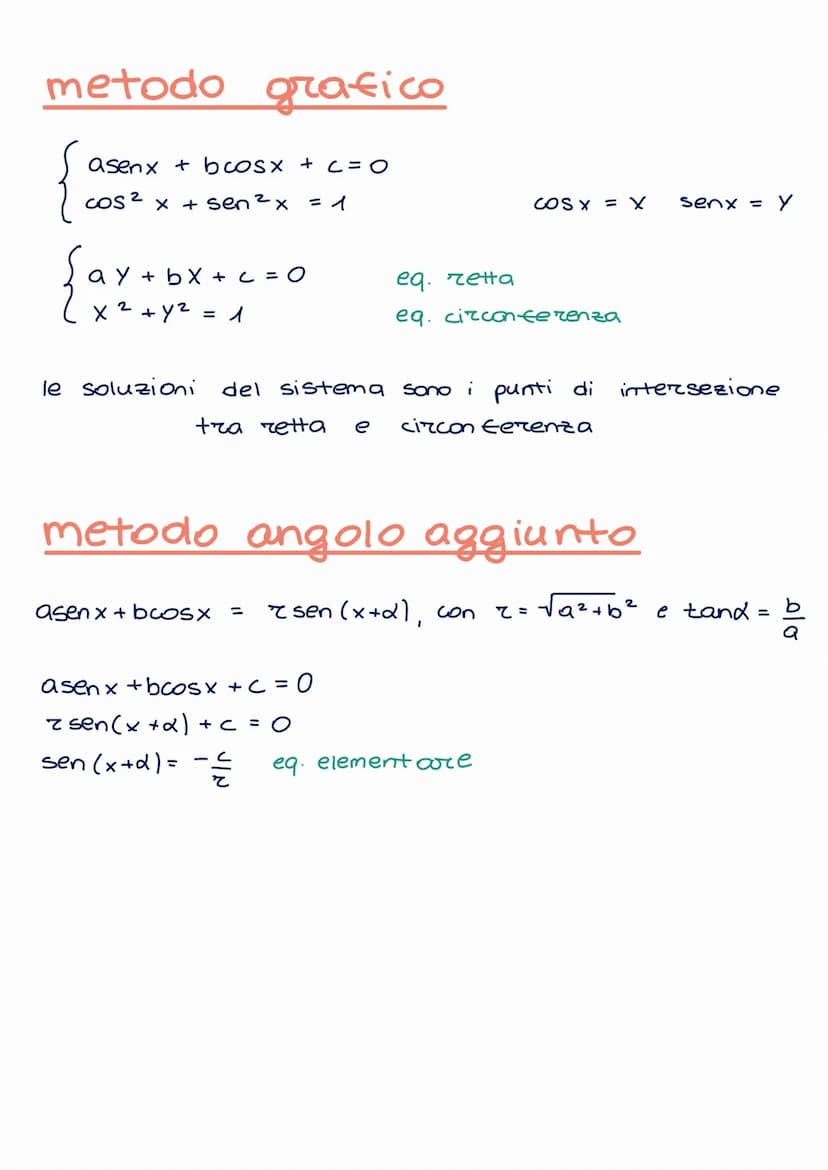 metodo grafico
{ asenx + bcosx + c = 0
cos² x + sen² x = 1 cosx = X senx = Y
{ aY + bX + c = 0 eq. retta
X² + Y² = 1 eq. circonferenza
le soluzioni del sistema sono i punti di intersezione
tra retta e circonferenza
metodo angolo aggiunto
asenx + bcosx = r sen (x+α), con r = √a²+b² e tanα = b/a
asenx + bcosx + c = 0
r sen(x+α) + c = 0
sen (x+α) = - c/r eq. elementare